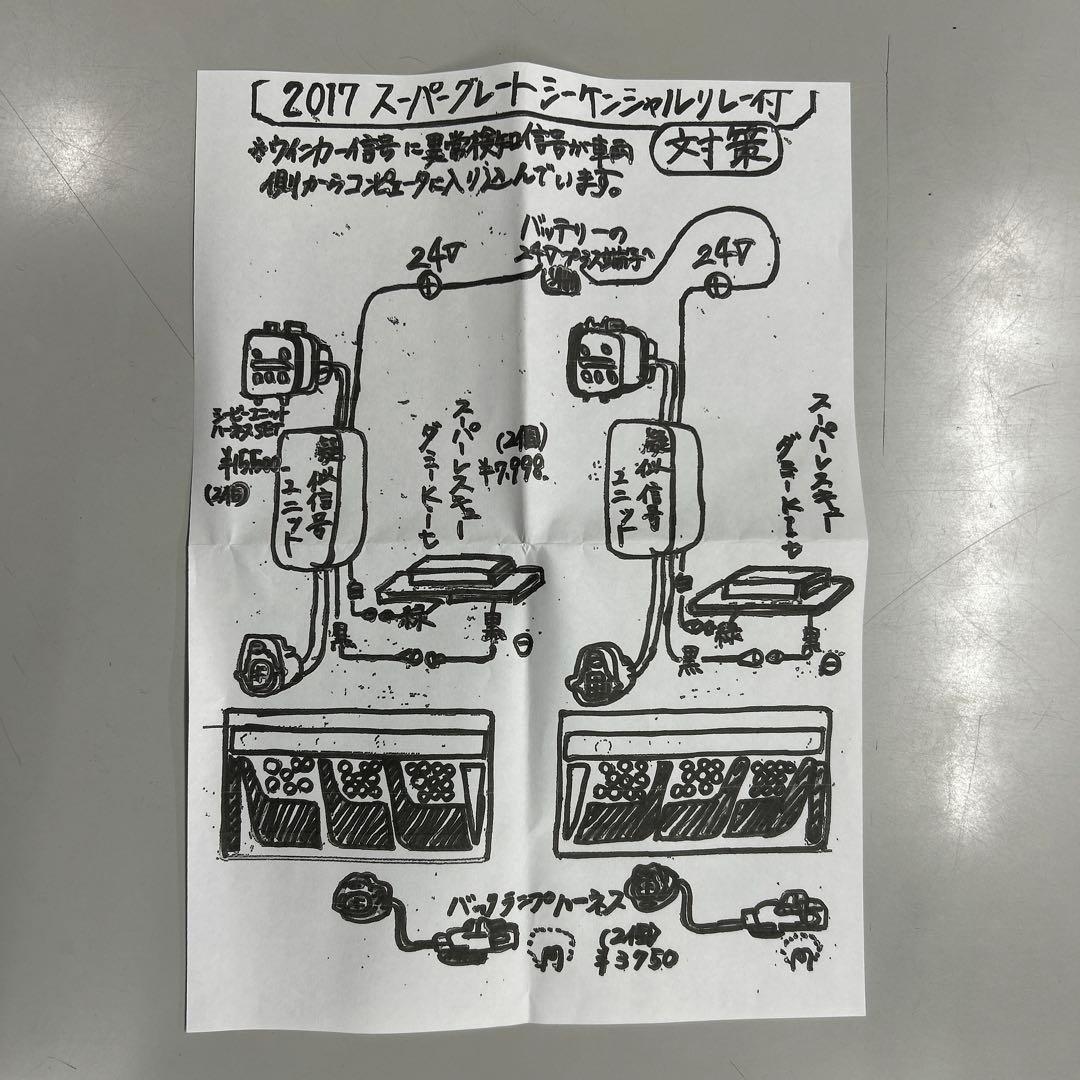 2017 スーパーグレートシーケンシャルリレー付
対策
※ウインカー信号に異常検知信号が車両
側からコンピュータに入り込んでいます。
バッテリーの
24Vプラス端子へ
24V
⊕
24V
⊕
シーピーユニット
ハーネスSET
¥15,500
(2個)
疑似信号
ユニット
スーパーレスキュー
ダミーKit
(2個)
¥7,998.
白
緑
黒
黒
⊖
疑似信号
ユニット
スーパーレスキュー
ダミーKit
白
緑
黒
黒
⊖
バックランプハーネス
(2個)
¥3750